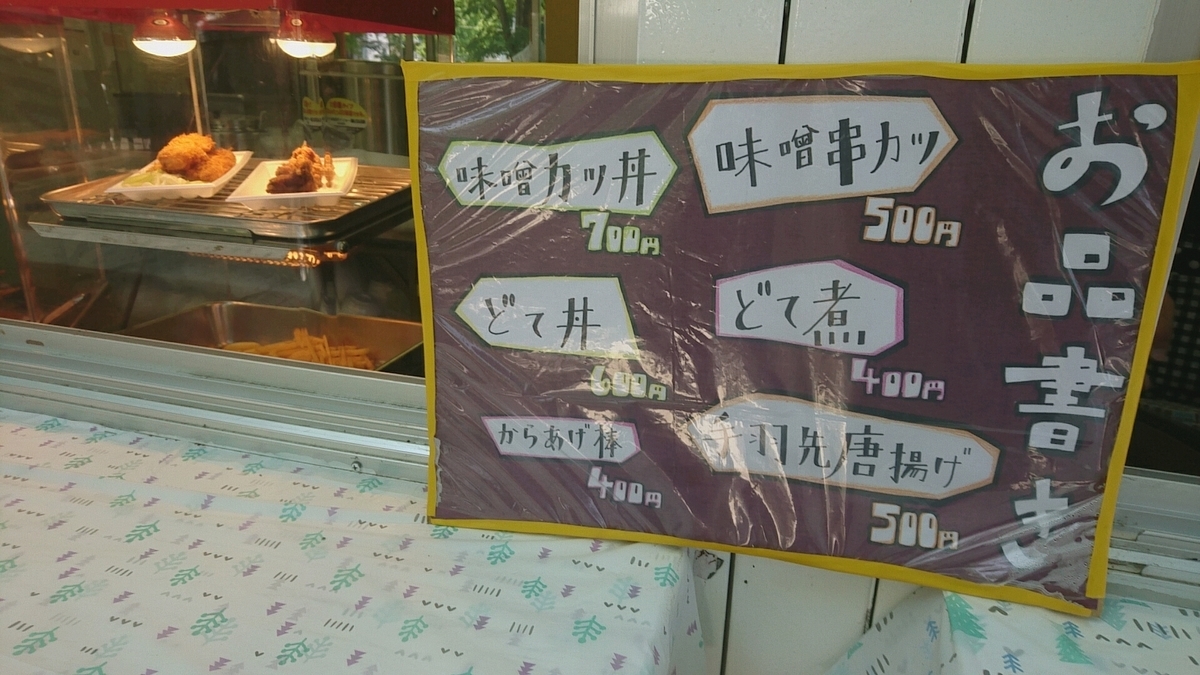 お品書き
味噌串カツ
500円
どて煮
400円
手羽先唐揚げ
500円
味噌カツ丼
700円
どて丼
600円
からあげ棒
400円